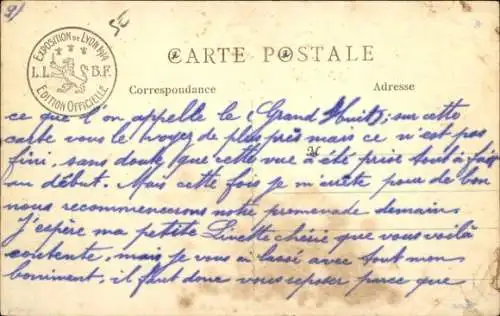 9/
5c
EXPOSITION DE LYON 1914
L.L. B.F.
EDITION OFFICIELLE
CARTE POSTALE
Correspondance Adresse
M
ce que l'on appelle le (Grand Huit); sur cette
carte vous le voyez de plus près mais ce n'est pas
fini, sans doute que cette vue a été prise tout à fait
au début. Mais cette fois je m'arrête pour de bon
nous recommencerons notre promenade demain.
J'espère ma petite Linette chérie que vous voilà
contente, mais je vous ai lassé avec tout mon
boniment, il faut donc vous reposer parce que